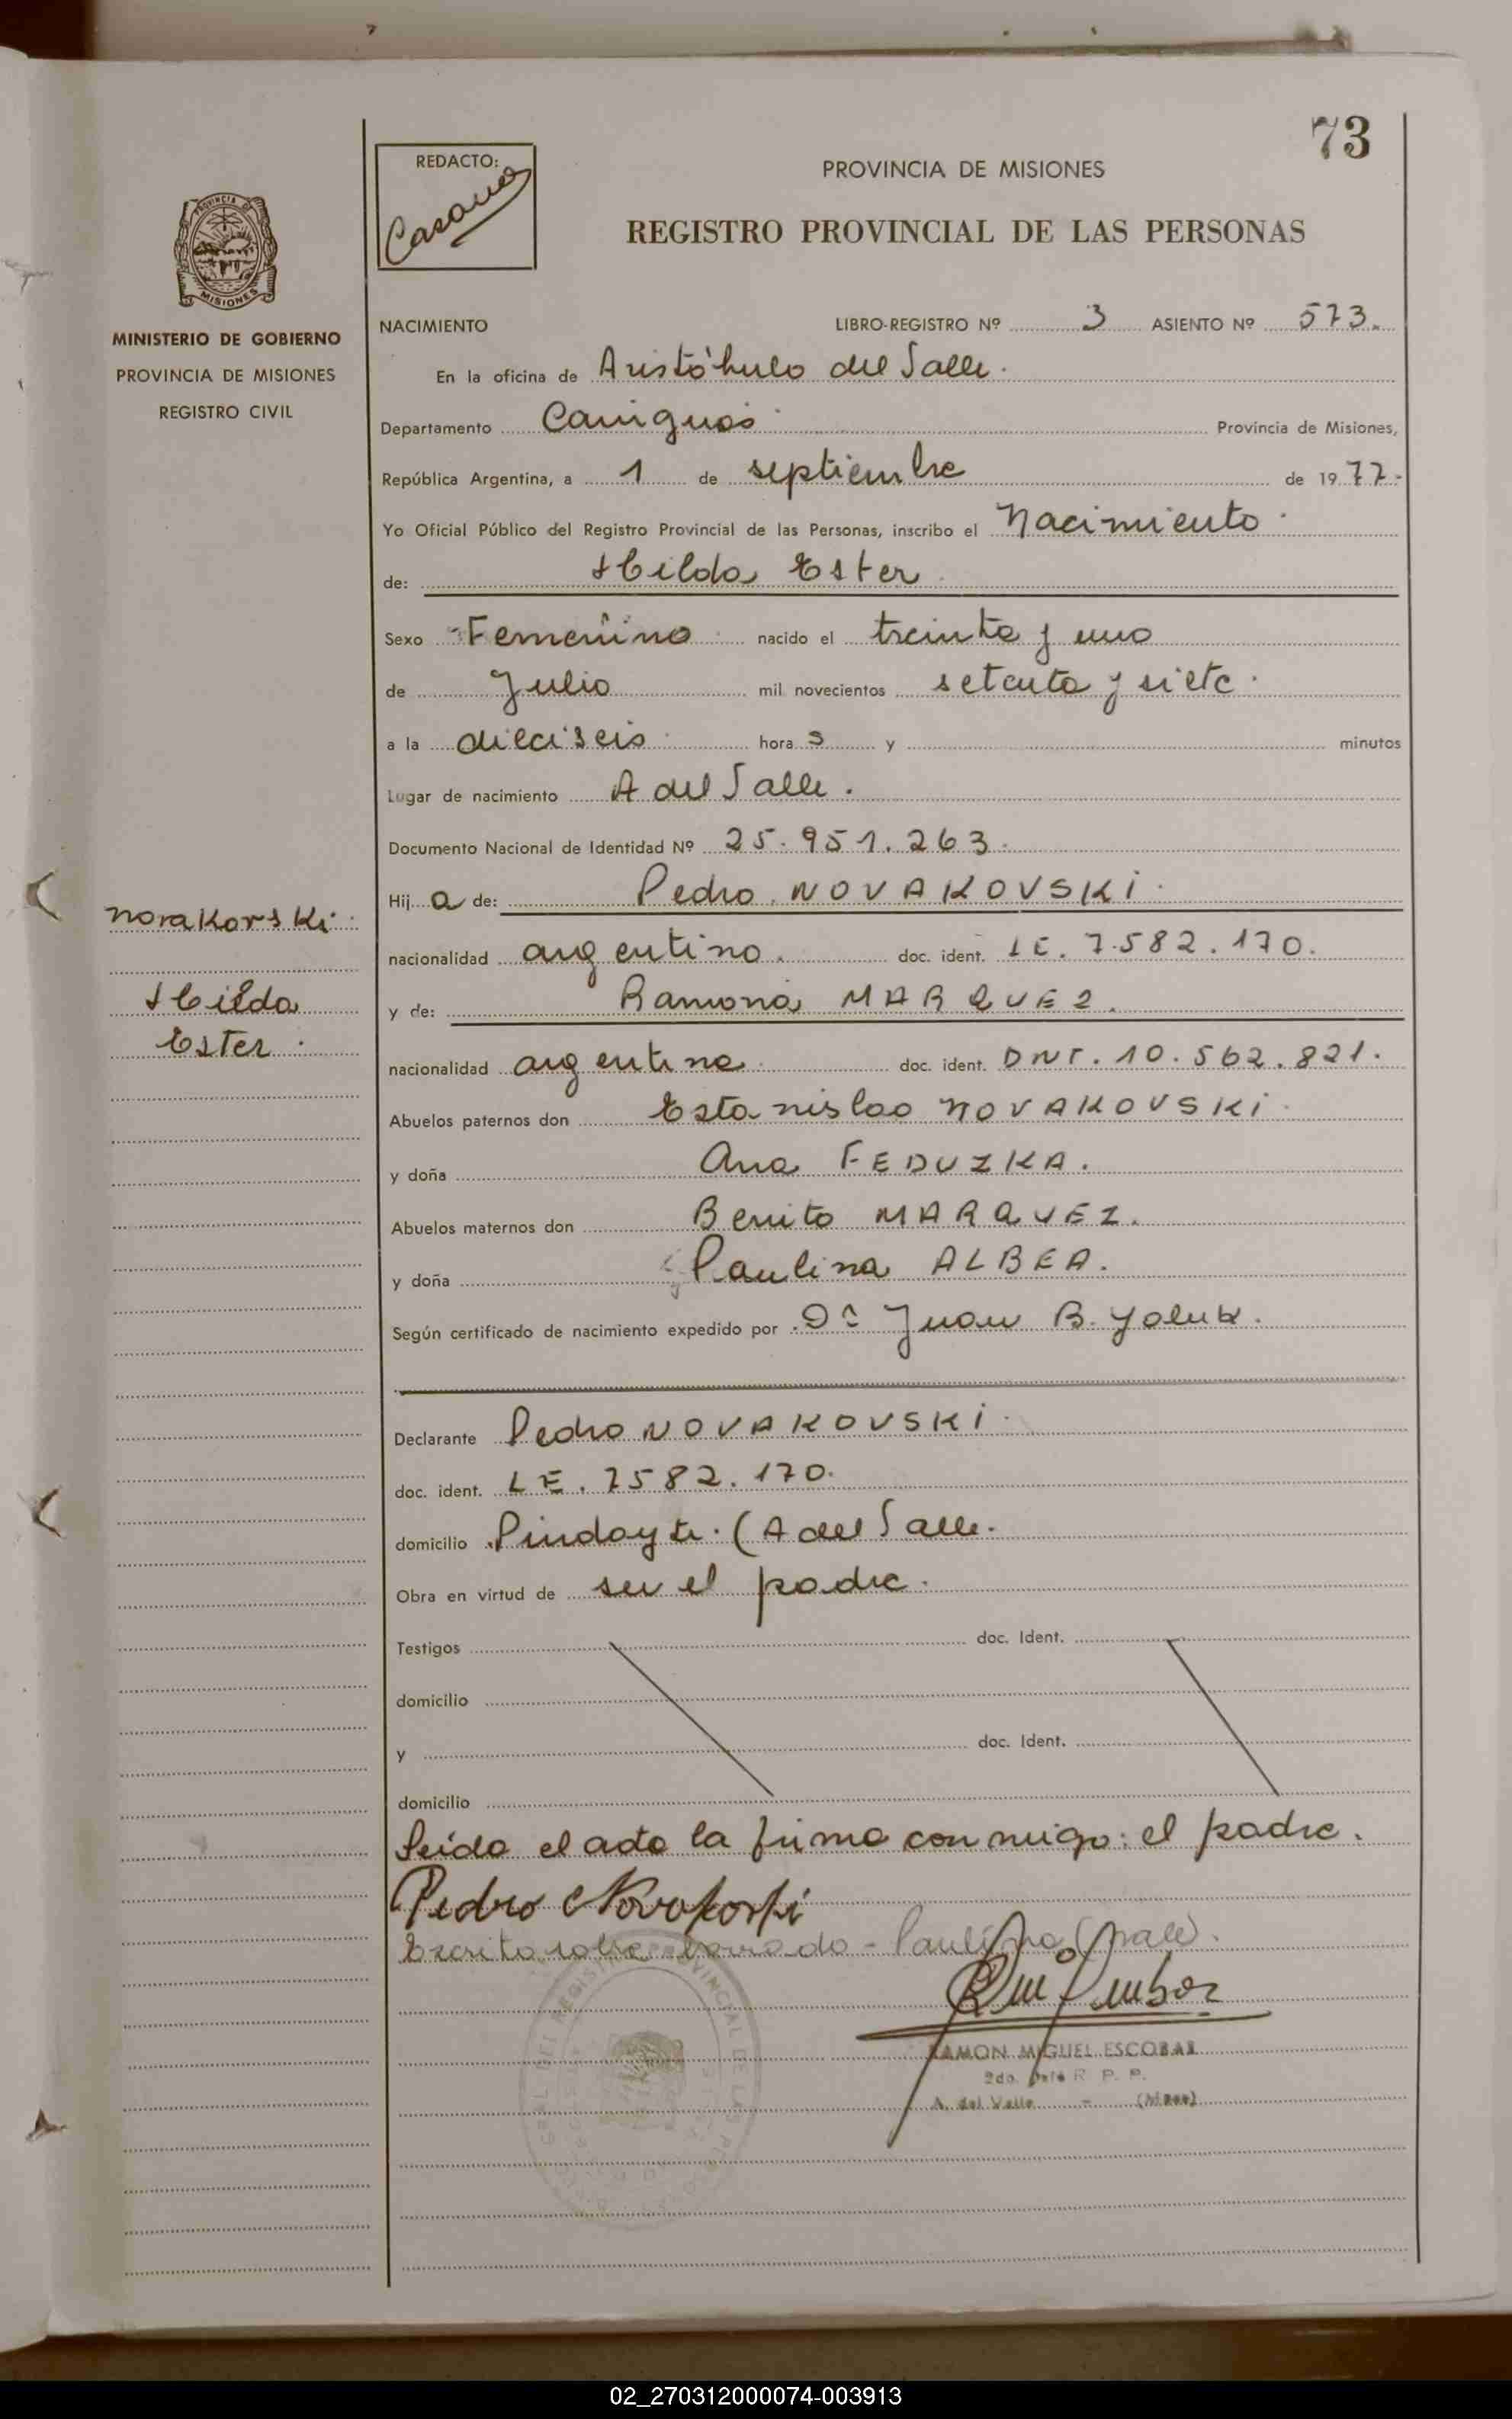 73
REDACTO:
PROVINCIA DE MISIONES
REGISTRO PROVINCIAL DE LAS PERSONAS
PROVINCIA DE
MISIONES
MINISTERIO DE GOBIERNO
PROVINCIA DE MISIONES
REGISTRO CIVIL
NACIMIENTO LIBRO-REGISTRO Nº 3 ASIENTO Nº 573.
En la oficina de Aristóbulo del Valle.
Departamento Cainguás Provincia de Misiones,
República Argentina, a 1 de septiembre de 1977.-
Yo Oficial Público del Registro Provincial de las Personas, inscribo el Nacimiento.
de: Hilda Ester
Sexo Femenino nacido el treinta y uno
de Julio mil novecientos setenta y siete.
a la dieciseis hora s y minutos
Lugar de nacimiento A del Valle.
Documento Nacional de Identidad Nº 25.951.263.
Hij a de: Pedro NOVAKOVSKi.
nacionalidad argentino. doc. ident. LE. 7.582.170.
y de: Ramona MARQUEZ.
nacionalidad argentina doc. ident. DNI. 10.562.821.
Abuelos paternos don Estanislao NOVAKOVSKi.
y doña Ana FEDUZKA.
Abuelos maternos don Benito MARQUEZ.
y doña Paulina ALBEA.
Según certificado de nacimiento expedido por Dr Juan B.
Novakovski
Hilda
Ester.
Declarante Pedro NOVAKOVSKi.
doc. ident. LE. 7582.170.
domicilio Pindayti. (A del Valle.
Obra en virtud de ser el padre.
Testigos doc. Ident.
domicilio
y doc. Ident.
domicilio
Leída el acta la firma conmigo: el padre.
Pedro Novakoski
Escrito sobre borrado - Paulina (vale).
RAMON MIGUEL ESCOBAR
2do. Jefe R. P. P.
A. del Valle - (Mnes)
02_270312000074-003913